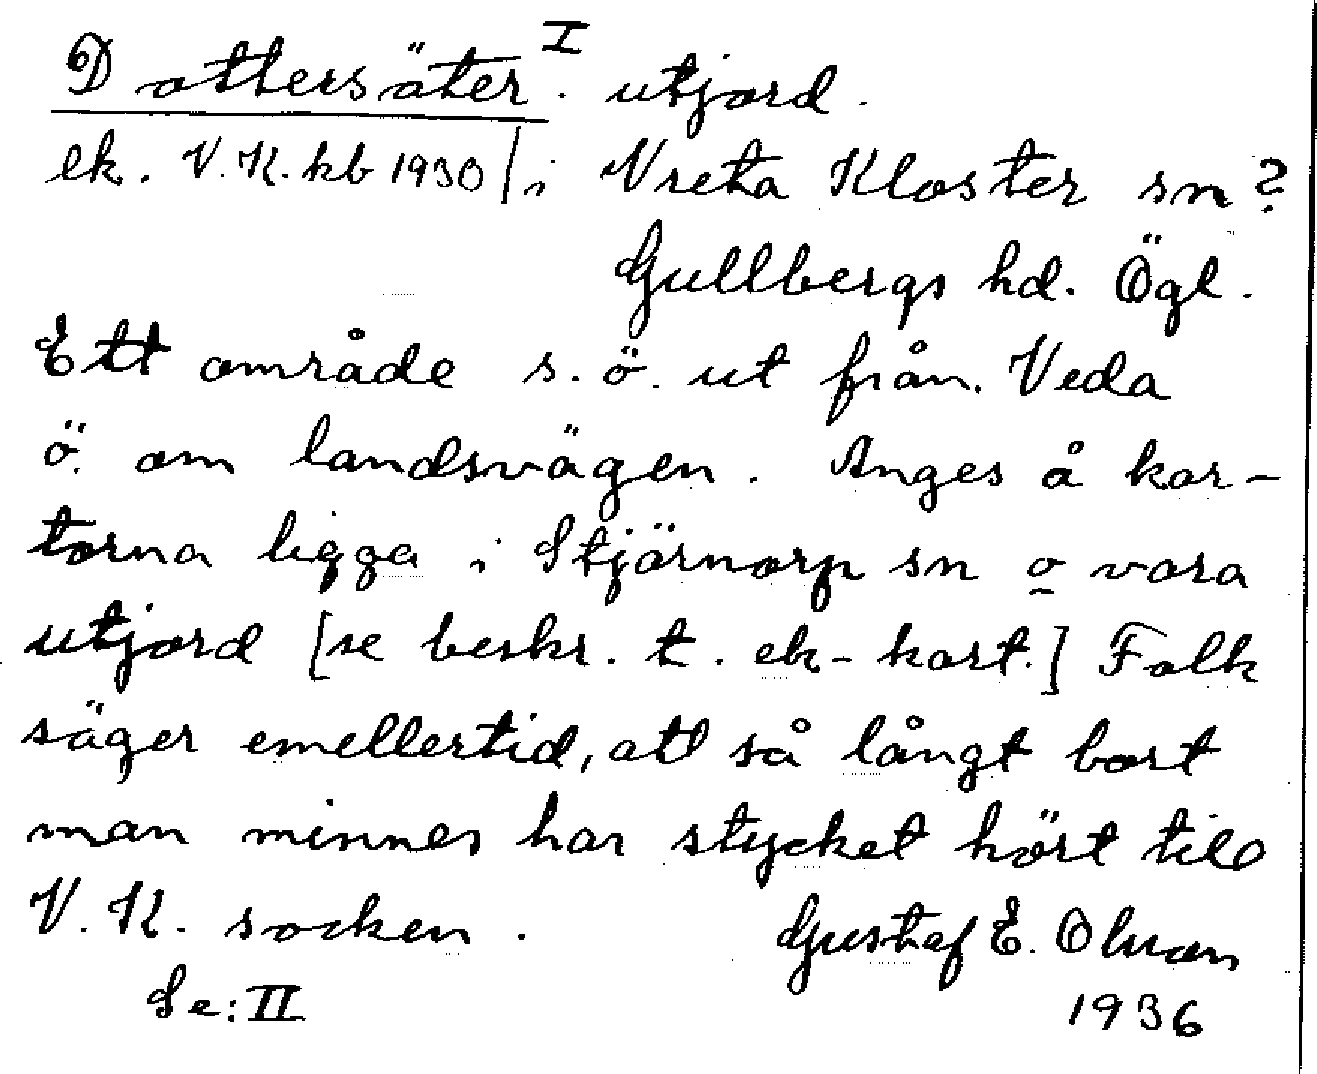 Dottersäter I. utjord.
ek. V.K. kb 1930 / i Vreta Kloster sn?
Gullbergs hd. Ögl.
Ett område s.ö. ut från. Veda
ö. om landsvägen. Anges å kar-
torna ligga i Stjärnorp sn o vara
utjord [se beskr. t. ek-kart.] Folk
säger emellertid, att så långt bort
man minnes har stycket hört till
V.K. socken. Gustaf E. Olsson
Se: II 1936